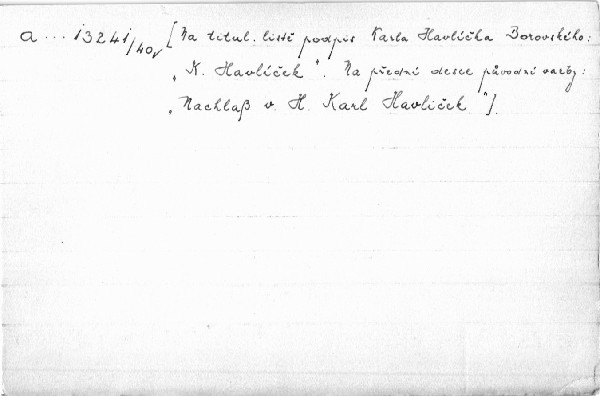 a ... 13241/40v [Na titul. listě podpis Karla Havlíčka Borovského:
„K. Havlíček". Na přední desce původní vazby:
„Nachlaß v. H. Karl Havliček"].